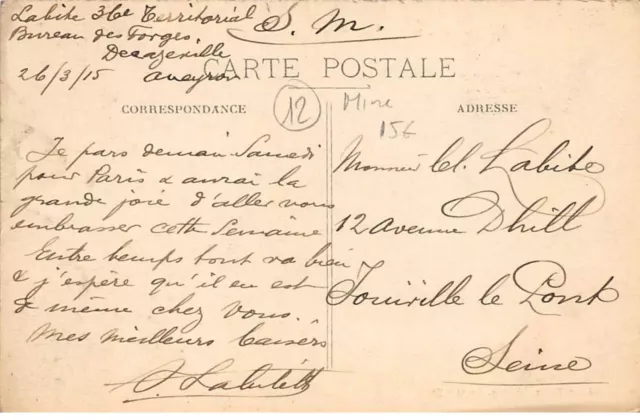 Labite 36e Territorial
S. M.
Bureau des Forges.
Decazeville
26/3/15 Aveyron
CARTE POSTALE
CORRESPONDANCE
12
Mine
15€
ADRESSE
Je pars demain Samedi
pour Paris & aurai la
grande joie d'aller vous
embrasser cette Semaine
Entre temps tout va bien
& j'espère qu'il en est
de même chez vous.
Mes meilleurs baisers
Monsieur Cl. Labite
12 avenue Dhill
Joinville le Pont
Seine